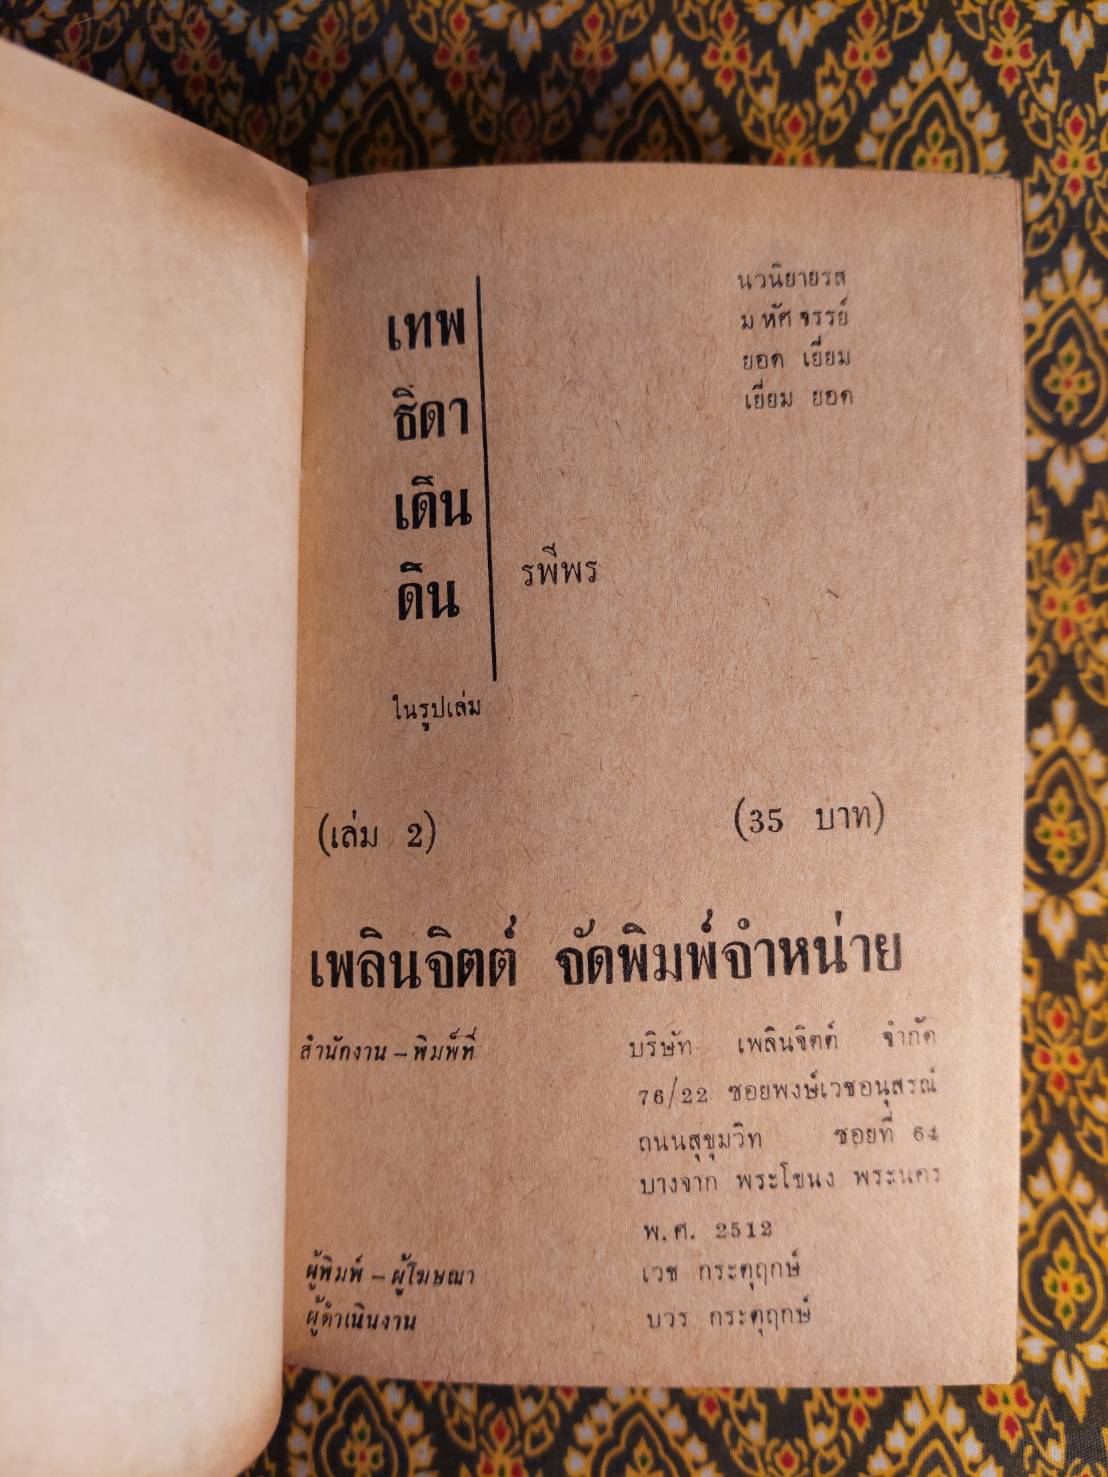 นวนิยายรส
มหัศจรรย์
ยอด เยี่ยม
เยี่ยม ยอด
เทพ
ธิดา
เดิน
ดิน
รพีพร
ในรูปเล่ม
(เล่ม 2) (35 บาท)
เพลินจิตต์ จัดพิมพ์จำหน่าย
สำนักงาน – พิมพ์ที่ บริษัท เพลินจิตต์ จำกัด
76/22 ซอยพงษ์เวชอนุสรณ์
ถนนสุขุมวิท ซอยที่ 64
บางจาก พระโขนง พระนคร
พ.ศ. 2512
ผู้พิมพ์ – ผู้โฆษณา เวช กระตุฤกษ์
ผู้ดำเนินงาน บวร กระตุฤกษ์